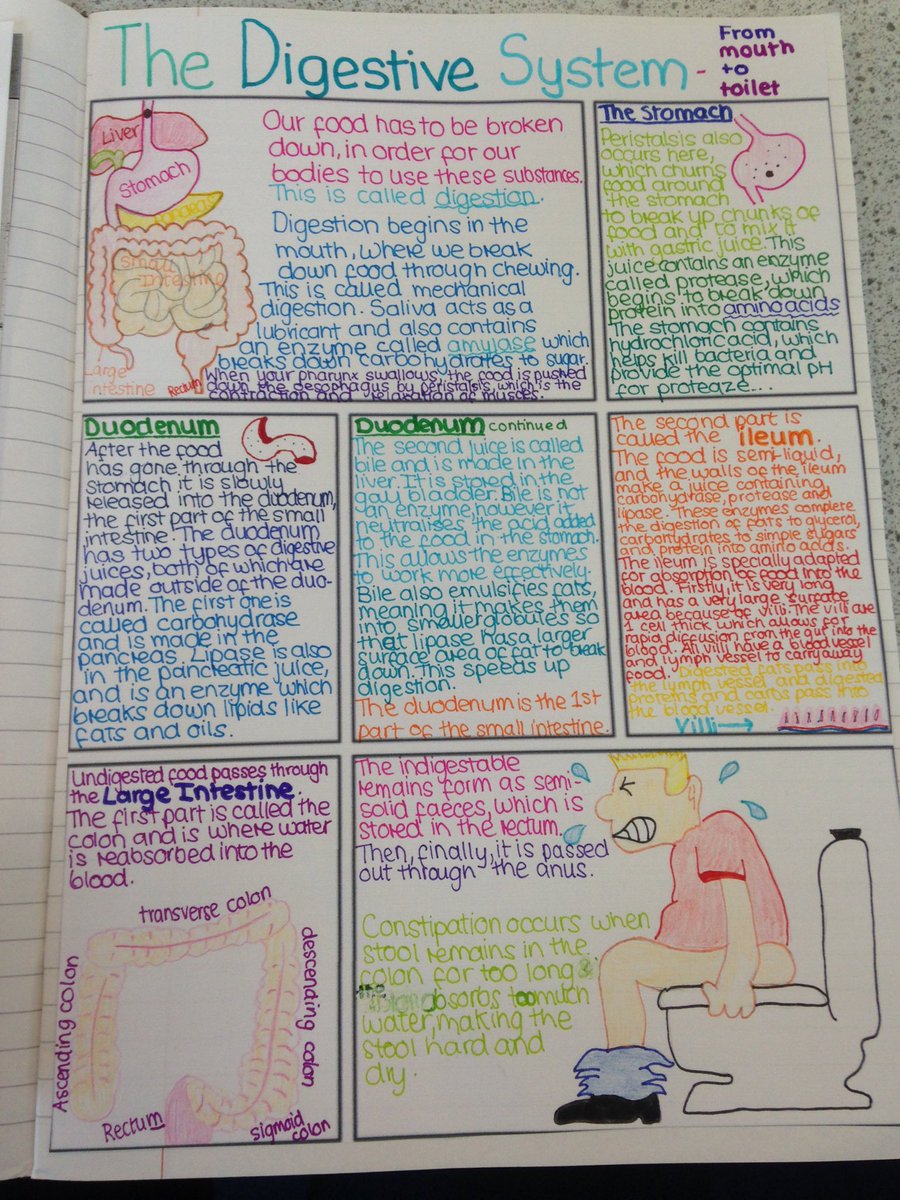 The Digestive System -
From
mouth
to
toilet
Liver
Stomach
Pancreas
Small
Intestine
Large
intestine
Rectum
Our food has to be broken
down, in order for our
bodies to use these substances.
This is called digestion.
Digestion begins in the
mouth, where we break
down food through chewing.
This is called mechanical
digestion. Saliva acts as a
lubricant and also contains
an enzyme called amylase which
breaks down carbohydrates to sugar.
When your pharynx swallows, the food is pushed
down the oesophagus by peristalsis, which is the
contraction and relaxation of muscles.
The Stomach
Peristalsis also
occurs here,
which churns
food around
the stomach
to break up chunks of
food and to mix it
with gastric juice. This
juice contains an enzyme
called protease, which
begins to break down
protein into amino acids
The stomach contains
hydrochloric acid, which
helps kill bacteria and
provide the optimal pH
for proteaze...
Duodenum
After the food
has gone through the
stomach it is slowly
released into the duodenum,
the first part of the small
intestine. The duodenum
has two types of digestive
juices, both of which are
made outside of the duo-
denum. The first one is
called carbohydrase
and is made in the
pancreas. Lipase is also
in the pancreatic juice,
and is an enzyme which
breaks down lipids like
fats and oils.
Duodenum continued
The second juice is called
bile and is made in the
liver. It is stored in the
gall bladder. Bile is not
an enzyme, however it
neutralises the acid added
to the food in the stomach.
This allows the enzymes
to work more effectively.
Bile also emulsifies fats,
meaning it makes them
into smaller globules so
that lipase has a larger
surface area of fat to break
down. This speeds up
digestion.
The duodenum is the 1st
part of the small intestine.
The second part is
called the ileum.
The food is semi-liquid,
and the walls of the ileum
make a juice containing
carbohydrase, protease and
lipase. These enzymes complete
the digestion of fats to glycerol,
carbohydrates to simple sugars
and protein into amino acids.
The ileum is specially adapted
for absorption of food into the
blood. Firstly, it is very long
and has a very large surface
area because of villi. The villi are
1 cell thick which allows for
rapid diffusion from the gut into the
blood. All villi have a blood vessel
and lymph vessel to carry away
food. Digested fats pass into
the lymph vessel and digested
proteins and carbs pass into
the blood vessel.
Villi
Undigested food passes through
the Large Intestine.
The first part is called the
colon and is where water
is reabsorbed into the
blood.
transverse colon
Ascending colon
descending colon
Rectum
sigmoid
colon
The indigestable
remains form as semi-
solid faeces, which is
stored in the rectum.
Then, finally, it is passed
out through the anus.
Constipation occurs when
stool remains in the
colon for too long &
absorbs too much
water, making the
stool hard and
dry.